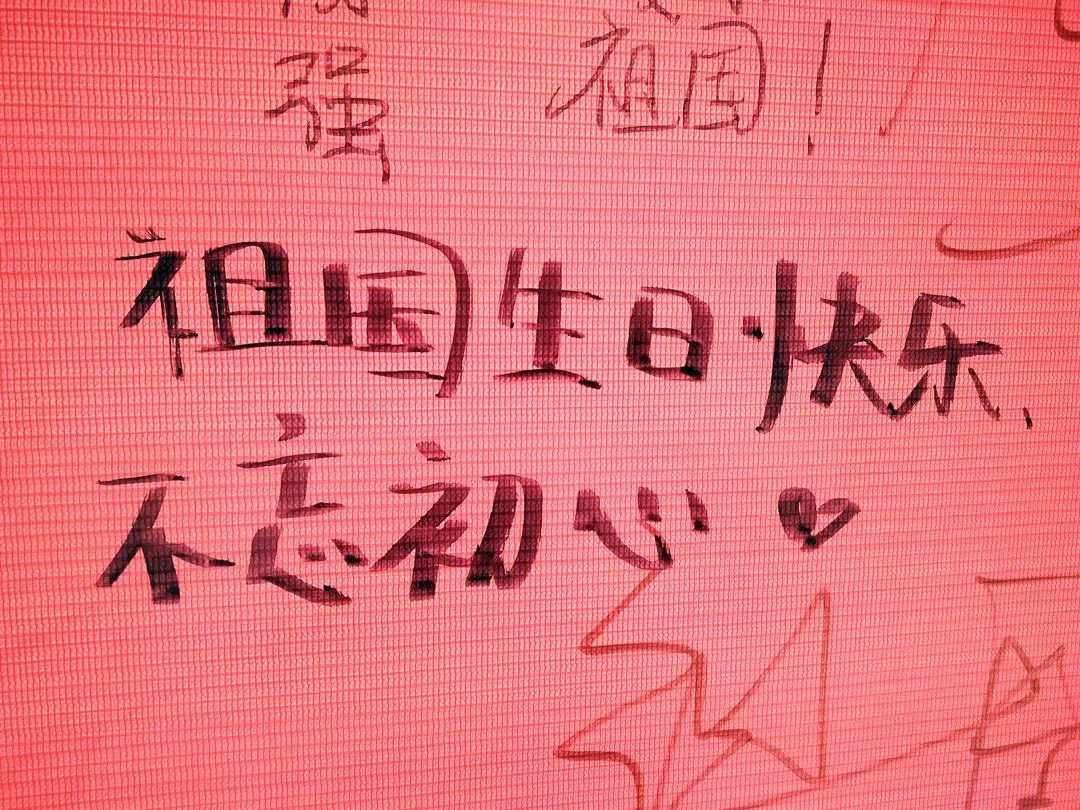 强 祖国！
祖国生日快乐、
不忘初心